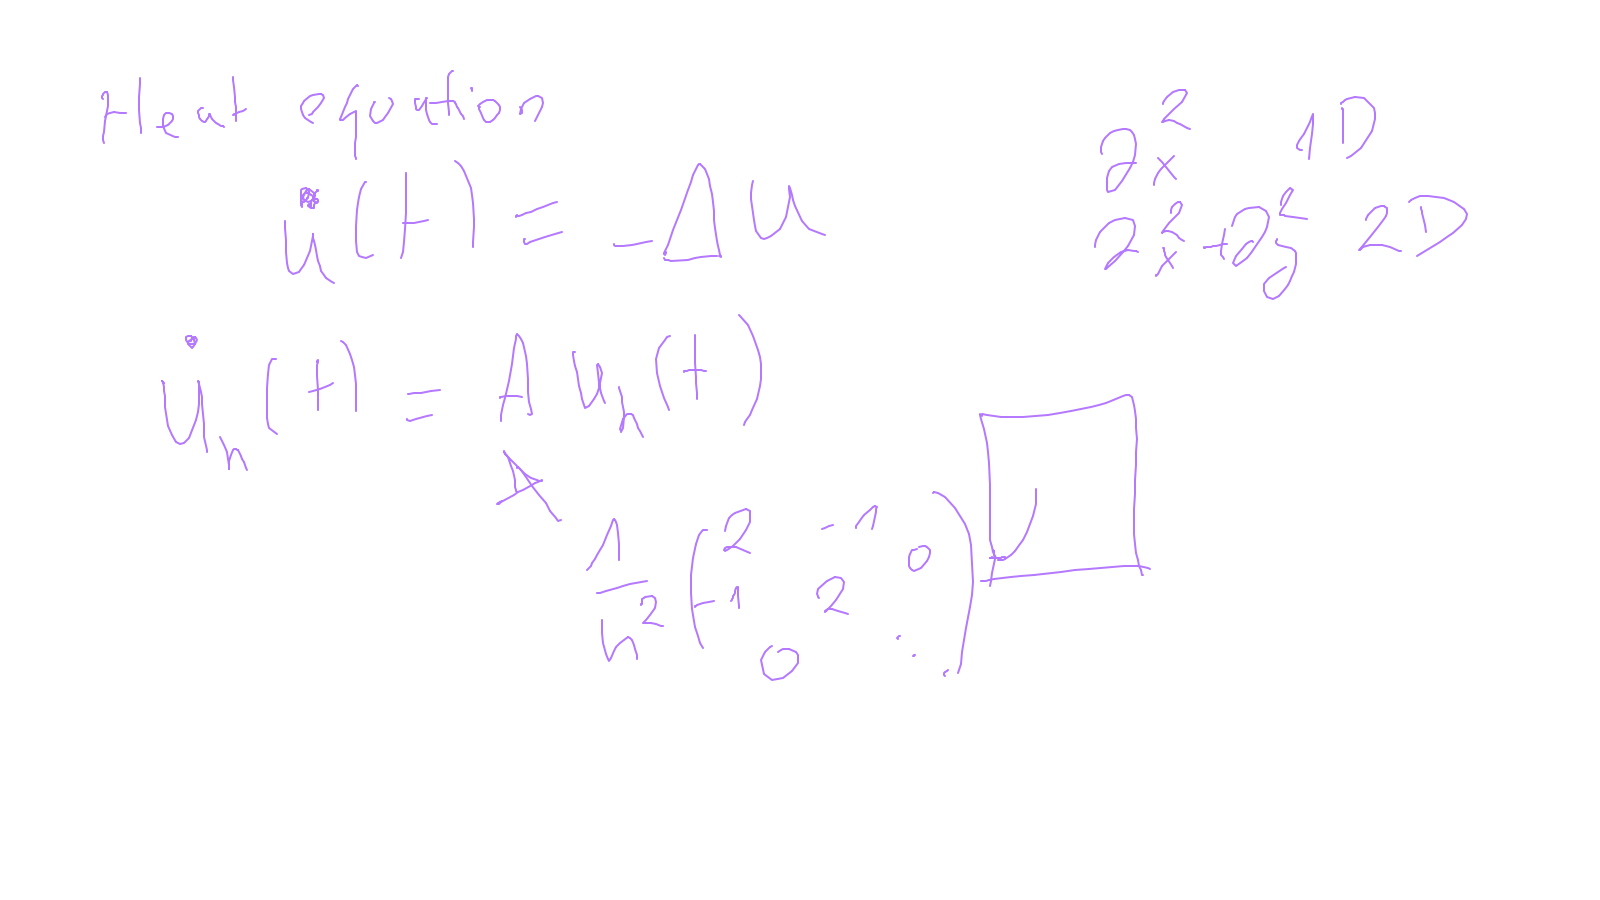 Heat equation
u̇(t) = -Δu
∂x² 1D
∂x²+∂y² 2D
u̇h(t) = A uh(t)
A
1/h² (2 -1 0
-1 2
0 ⋱)